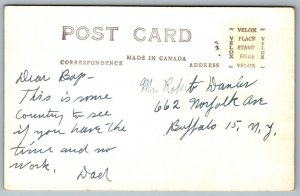 POST CARD
CORRESPONDENCE
MADE IN CANADA
ADDRESS
VELOX
VELOX PLACE VELOX
STAMP
HERE
VELOX
Dear Bob -
This is some
country to see
if you have the
time and no
work.
Dad
Mr. Robert
662 Norfolk Ave
Buffalo 15, N.Y.